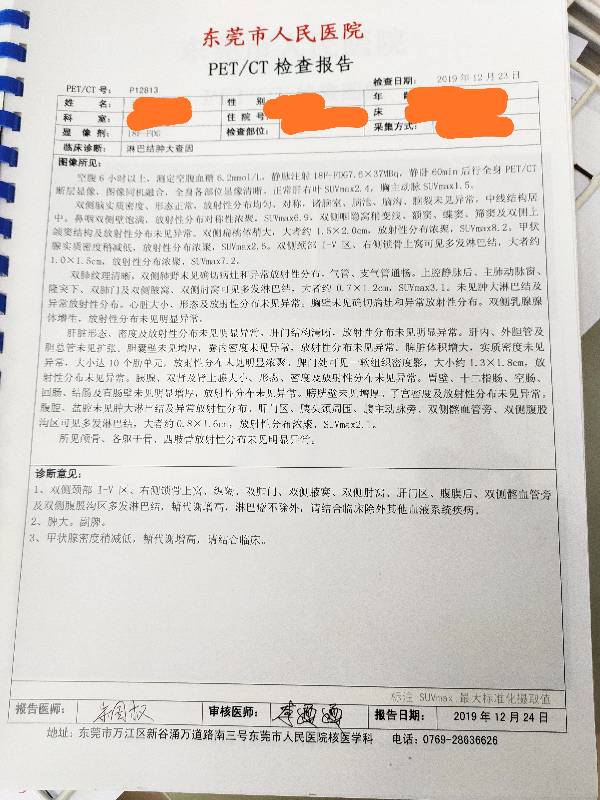 东莞市人民医院
PET/CT 检查报告
PET/CT 号: P12813 检查日期: 2019 年 12 月 23 日
姓 名: 性 别 年
科 室: 住 院 号: 床
显 像 剂: 18F-FDG 检查部位: 采集方式:
临床诊断: 淋巴结肿大查因
图像所见:
空腹 6 小时以上,测定空腹血糖 6.2mmol/L,静脉注射 18F-FDG7.6×37MBq,静卧 60min 后行全身 PET/CT
断层显像,图像同机融合,全身各部位显像清晰,正常肝右叶 SUVmax2.4,胸主动脉 SUVmax1.5。
双侧脑实质密度、形态正常,放射性分布均匀、对称,诸脑室、脑池、脑沟、脑裂未见异常,中线结构居
中。鼻咽双侧壁饱满,放射性分布对称性浓聚,SUVmax6.9。双侧咽隐窝稍变浅,额窦、蝶窦、筛窦及双侧上
颌窦结构及放射性分布未见异常。双侧扁桃体稍大,大者约 1.5×2.0cm,放射性分布浓聚,SUVmax8.2。甲状
腺实质密度稍减低,放射性分布浓聚,SUVmax2.5。双侧颈部 I-V 区、右侧锁骨上窝可见多发淋巴结,大者约
1.0×1.5cm,放射性分布浓聚,SUVmax7.2。
双肺纹理清晰,双侧肺野未见确切病灶和异常放射性分布,气管、支气管通畅。上腔静脉后、主肺动脉窗、
隆突下、双肺门及双侧腋窝、双侧肘窝可见多发淋巴结,大者约 0.7×1.2cm,SUVmax3.1。未见肿大淋巴结及
异常放射性分布。心脏大小、形态及放射性分布未见异常。胸壁未见确切病灶和异常放射性分布。双侧乳腺腺
体增生,放射性分布未见明显异常。
肝脏形态、密度及放射性分布未见明显异常,肝门结构清晰,放射性分布未见明显异常。肝内、外胆管及
胆总管未见扩张。胆囊壁未见增厚,囊内密度未见异常,放射性分布未见异常。脾脏体积增大,实质密度未见
异常,大小达 10 个肋单元,放射性分布未见明显浓聚,脾门处可见一软组织密度影,大小约 1.3×1.8cm,放
射性分布未见异常。胰腺、双肾及肾上腺大小、形态、密度及放射性分布未见异常。胃壁、十二指肠、空肠、
回肠、结肠及直肠壁未见明显增厚,放射性分布未见异常。膀胱壁未见增厚,子宫密度及放射性分布未见异常。
腹腔、盆腔未见肿大淋巴结及异常放射性分布,肝门区、胰头颈周围、腹主动脉旁、双侧髂血管旁、双侧腹股
沟区可见多发淋巴结,大者约 0.8×1.6cm,放射性分布浓聚,SUVmax2.1。
所见颅骨、各躯干骨、四肢骨放射性分布未见明显异常。
诊断意见:
1、双侧颈部 I-V 区、右侧锁骨上窝,纵隔,双肺门、双侧腋窝、双侧肘窝、肝门区、腹膜后、双侧髂血管旁
及双侧腹股沟区多发淋巴结,糖代谢增高,淋巴瘤不除外,请结合临床除外其他血液系统疾病。
2、脾大。副脾。
3、甲状腺密度稍减低,糖代谢增高,请结合临床。
标注 SUVmax 最大标准化摄取值
报告医师: 审核医师: 报告日期: 2019 年 12 月 24 日
地址: 东莞市万江区新谷涌万道路南三号东莞市人民医院核医学科 电话: 0769-28636626